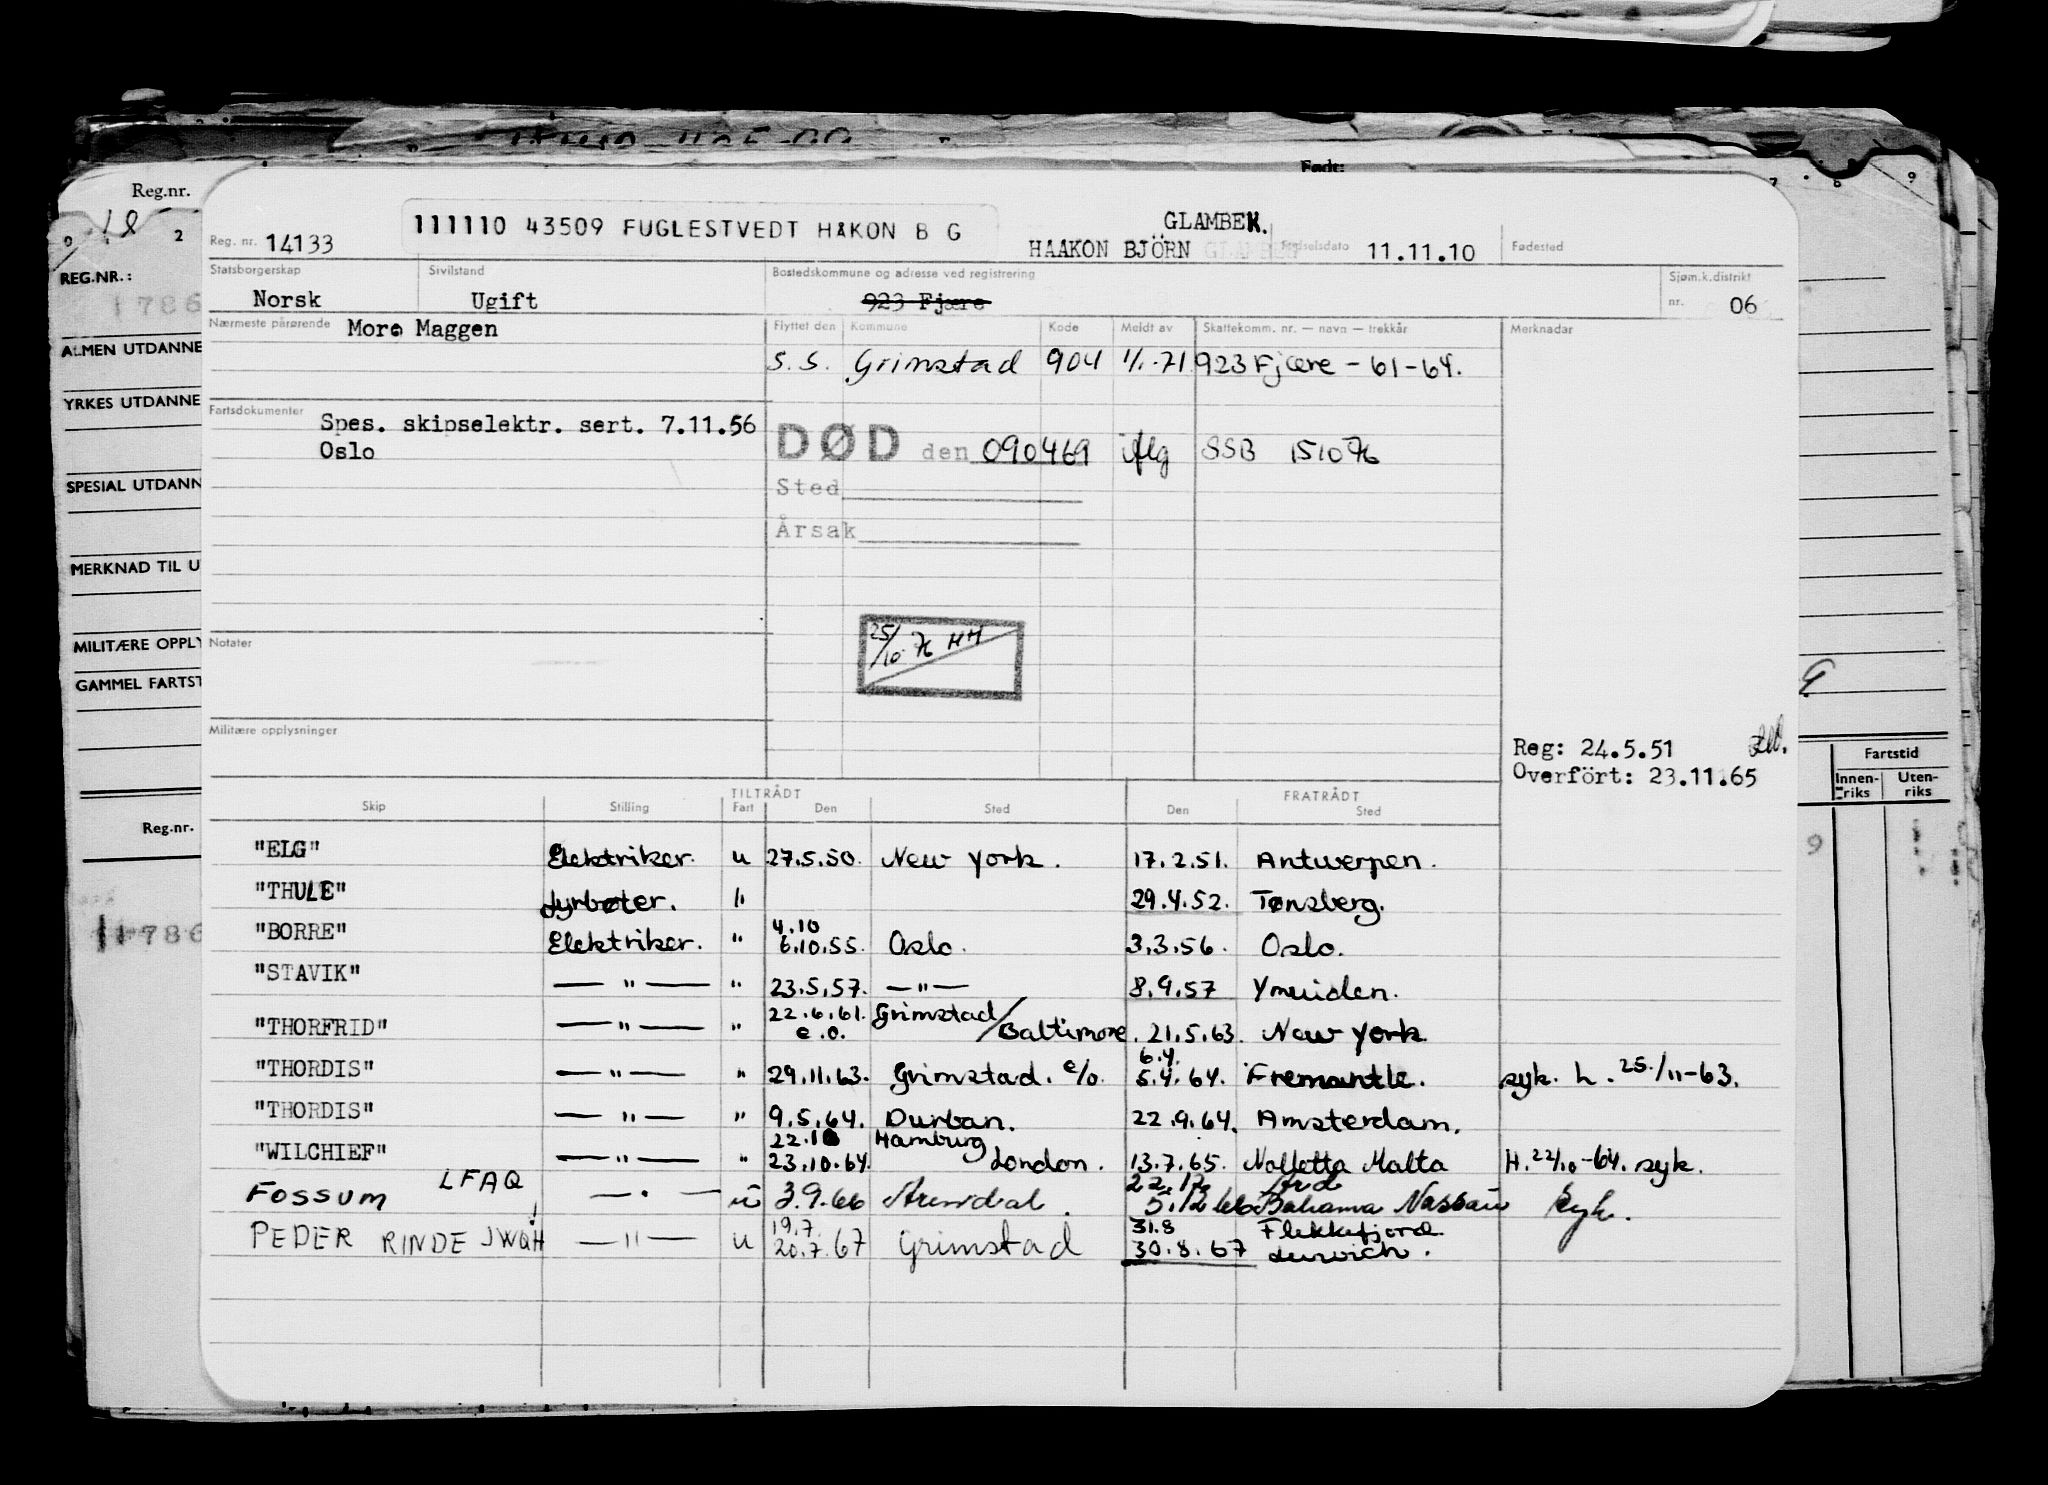 Født:
Reg.nr.
REG.NR.:
1786
ALMEN UTDANNE
YRKES UTDANNE
SPESIAL UTDANN
MERKNAD TIL U
MILITÆRE OPPLY
GAMMEL FARTST
Reg.nr.
11786
Fartstid
Innen-riks Uten-riks
9
Reg. nr. 14133 111110 43509 FUGLESTVEDT HÅKON B G GLAMBEK.
HAAKON BJÖRN Fødselsdato 11.11.10 Fødested
Statsborgerskap Sivilstand Bostedskommune og adresse ved registrering Sjøm.k.distrikt
Norsk Ugift 923 Fjære nr. 06
Nærmeste pårørende More Maggen Flyttet den Kommune Kode Meldt av Skattekomm. nr. — navn — trekkår Merknader
S.S. Grimstad 904 1/1-71 923 Fjære - 61-64.
Fartsdokumenter Spes. skipselektr. sert. 7.11.56
Oslo
DØD den 090469 iflg SSB 151076
Sted
Årsak
25/10 76 HH
Notater
Militære opplysninger
Reg: 24.5.51
Overfört: 23.11.65
TILTRÅDT FRATRÅDT
Skip Stilling Fart Den Sted Den Sted
"ELG" Elektriker. u 27.5.50. New York. 17.2.51. Antwerpen.
"THULE" fyrbøter. " 29.4.52. Tønsberg.
"BORRE" Elektriker. " 4.10 6.10.55. Oslo. 3.3.56. Oslo.
"STAVIK" — " — " 23.5.57. — " — 8.9.57 Ymuiden.
"THORFRID" — " — " 22.6.61. e.o. Grimstad/Baltimore. 21.5.63. New York
"THORDIS" — " — " 29.11.63. Grimstad. e/o. 6.4. 5.4.64. Fremantle. syk. h. 25./11-63.
"THORDIS" — " — " 9.5.64. Durban. 22.9.64. Amsterdam.
"WILCHIEF" — " — " 22.10 23.10.64. Hamburg London. 13.7.65. Valletta Malta H. 22/10-64. syk.
FOSSUM LFAQ — " — u 3.9.66 Arendal. 22.12 5.12 66 Ard Bahama Nassau syk.
PEDER RINDE JWQH — " — u 19.7. 20.7.67 Grimstad 31.8 30.8.67 Flekkefjord. Lurvich.